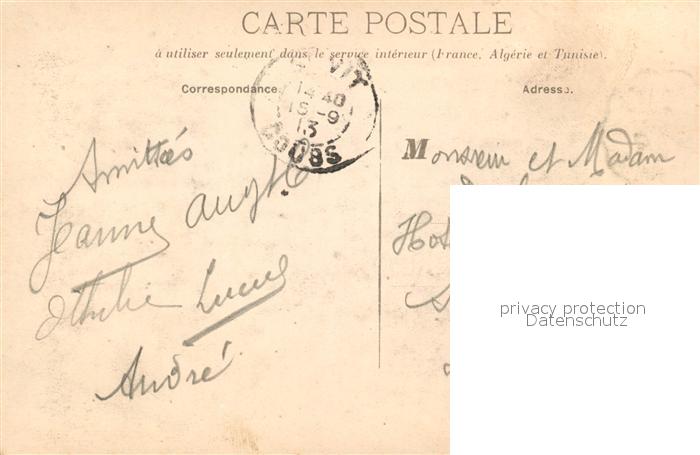 CARTE POSTALE
à utiliser seulement dans le service intérieur (France, Algérie et Tunisie).
Correspondance
Adresse.
VIT
14 40
15 -9
13
DOUBS
Amitiés
Jeanne
Lucie
André
Monsieur et Madam
Hot
privacy protection
Datenschutz